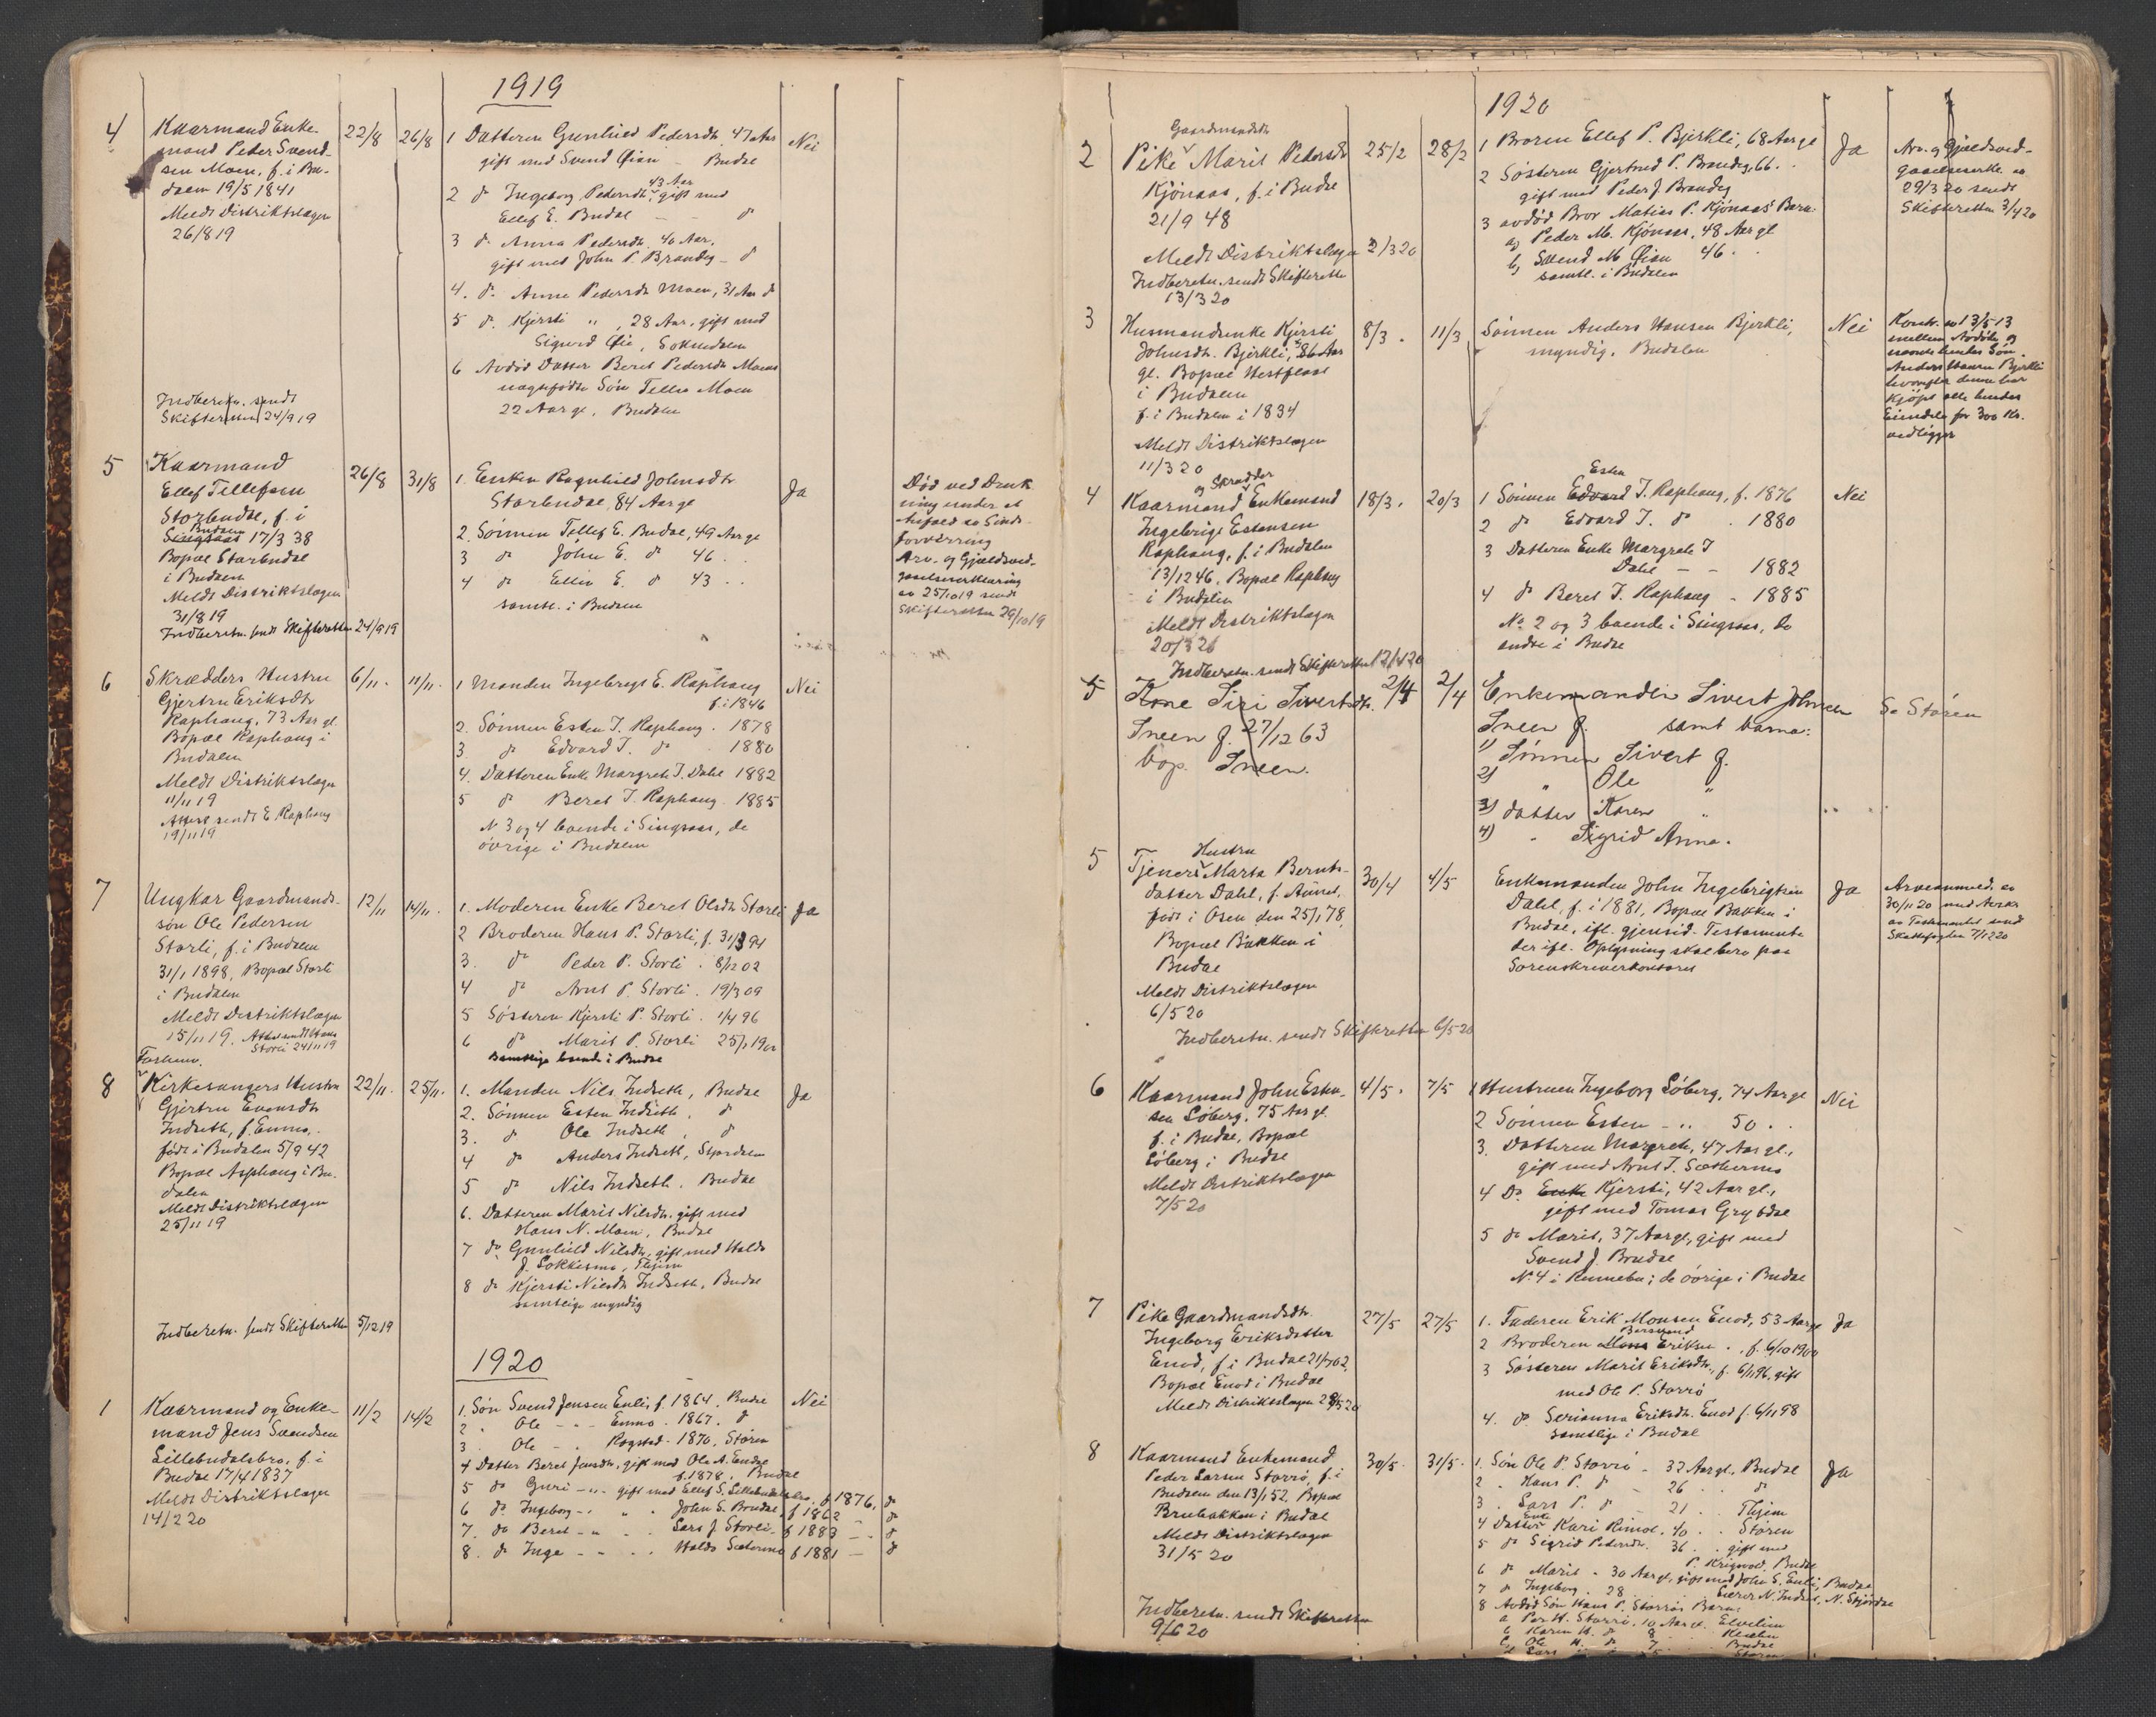 1919
4
Kaarmand Enke-
mand Peder Svend-
sen Moen, f. i Bu-
dalen 19/5 1841
Meldt Distriktslægen
26/8 19
Indberetn. sendt
Skifteretten 24/9 19
22/8
26/8
1 Datteren Gunhild Pedersdtr. 47 Aar
gift med Svend Øian - Budal
2 do Ingeborg Pedersdtr. 43 Aar gift med
Ellef E. Budal - - do
3 do Anna Pedersdtr. 40 Aar,
gift med John P. Brandeg - do
4. do Anne Pedersdtr Moen, 31 Aar do
5 do. Kjersti " , 28 Aar, gift med
Sigurd Øie, Soknedalen
6 Avdød Datter Beret Pedersdtr Moens
uægtefødte Søn Tellev Moen
22 Aar gl, Budalen
Nei
5
Kaarmand
Ellef Tellefsen
Storbudal, f. i
Singsaas Budalen 17/3 38
Bopæl Storbudal
i Budalen
Meldt Distriktslægen
31/8 19
Indberetn. sendt Skifteretten 24/9 19
26/8
31/8
1. Enken Ragnhild Johnsdtr
Storbudal, 84 Aar gl
2. Sønnen Tellef E. Budal, 49 Aar gl
3 do John E. do 46 . .
4 do Ellev E. do 43 . .
samtl. i Budalen
Ja
Død ved Druk
ning under et
Anfald av Sinds-
forvirring
Arv- og Gjældsved-
gaaelseserklæring
av 25/10 19 sendt
Skifteretten 29/10 19
6
Skrædders Hustru
Gjertru Eriksdtr
Raphaug, 73 Aar gl.
Bopæl Raphaug i
Budalen
Meldt Distriktslægen
11/11 19
Attest sendt E Raphaug
19/11 19
6/11.
11/11.
1 Manden Ingebrigt E. Raphaug
f. i 1846
2. Sønnen Esten I. Raphaug . 1878
3 do Edvard I. do . 1880
4. Datteren Enke Margrete I. Dahl 1882
5 do Beret I. Raphaug . 1885
N 3 og 4 boende i Singsaas, de
øvrige i Budalen
Nei
7
Ungkar Gaardmands-
søn Ole Pedersen
Storli, f. i Budalen
31/1 1898, Bopæl Storli
i Budalen
Meldt Distriktslægen
15/11 19. Attest sendt Hans
Storli 24/11 19
12/11
14/11.
1. Moderen Enke Beret Olsdtr Storli
2 Broderen Hans P. Storli, f. 31/3 94
3. do Peder P. Storli . 8/12 02
4 do Arnt P. Storli . 19/3 09
5 Søsteren Kjersti P. Storli . 1/4 96
6 do Marit P. Storli 25/1 1900
Samtlige boende i Budal
Ja
8
Forhenv.
Kirkesangers Hustru
Gjertru Evensdtr
Indseth, f. Enmo,
født i Budalen 5/9 42
Bopæl Asphaug i Bu-
dalen
Meldt Distriktslægen
25/11 19
Indberetn. sendt Skifteretten 5/12 19
22/11.
25/11.
1. Manden Nils Indseth, Budal
2. Sønnen Esten Indseth, do
3. do Ole Indseth, do
4 do Anders Indseth, Stjørdalen
5 do Nils Indseth, Budal
6. Datteren Marit Nilsdtr. gift med
Hans N. Moen, Budal
7 do Gunhild Nilsdtr. gift med Haldo
J. Løkkesmo, Flajem
8 do Kjersti Nilsdtr Indseth, Budal
samtlige myndig
Ja
1920
1
Kaarmand og Enke-
mand Jens Svendsen
Lillebudalsbro, f. i
Budal 17/4 1837
Meldt Distriktslægen
14/2 20
11/2
14/2
1. Søn Svend Jensen Enlid, f. 1864. Budal
2 . Ole - - Enmo . 1867. do
3 . Ole - . Rogstad - 1870, Støren
4 Datter Beret Jensdtr, gift med Ole A. Endal
f. 1878, Budal
5 do Guri - " - gift med Ellef S. Lillebudalsbro, f 1876, do
6 do Ingeborg - . " . John S. Brudal, f 1862 - do
7. do Beret - " . . Lars J. Storli, f 1883 - do
8. do Inga - - . . Haldo Sæthermo f 1881 - do
Nei
1920
2
Gaardmandsdtr
Pike Marit Pedersdtr
Kjønaas, f. i Budal
21/9 48
Meldt Distriktslægen 2/3 20
Indberetn. sendt Skifteretten
13/3 20
25/2
28/2
1 Broren Ellef P. Bjerkli, 68 Aar gl
2 Søsteren Gjertrud P. Brandeg, 66 . .
gift med Peder J. Brandeg
3 avdød Bror Matias P. Kjønaas' Barn:
a, Peder M. Kjønaas, 48 Aar gl
b, Svend M Øian 46 . .
samtl. i Budalen
Ja
Arv- og Gjældsved-
gaaelseserkl. av
29/3 20 sendt
Skifteretten 3/4 20
3
Husmandsenke Kjersti
Johnsdtr. Bjerkli, 86 Aar
gl. Bopæl Vestflaas
i Budalen
f. i Budalen i 1834
Meldt Distriktslægen
11/3 20
8/3 .
11/3
Sønnen Anders Hansen Bjerkli,
myndig, Budalen
Nei
Kontr. av 13/5 13
mellem Avdøde og
nævnte hendes Søn
Anders Hansen Bjerkli
hvorefter denne har
kjøpt alle hendes
Eiendele for 300 Kr.
vedligger
4
og Skrædder
Kaarmand Enkemand
Ingebrigt Estensen
Raphaug, f. i Budalen
13/12 46. Bopæl Raphaug
i Budalen
Meldt Distriktslægen
20/3 20
Indberetn. sendt Skifteretten 12/4 20
18/3.
20/3
Esten
1 Sønnen Edvard I. Raphaug, f. 1876
2 do Edvard I. do . 1880
3 Datteren Enke Margrete I
Dahl - - 1882
4 do Beret I. Raphaug - 1885
No. 2 og 3 boende i Singsaas, de
andre i Budal
Nei
5
Kone Siri Sivertsdtr.
Sneen f. 27/12 63
bop. Sneen.
2/4
2/4
Enkemanden Sivert Johnsen
Sneen f. samt barna:
1) Sønnen Sivert f.
2) " Ole "
3) datter Karen "
4) " Sigrid Anna.
Se Støren
5
Hustru
Tjeners Marta Bernts-
datter Dahl, f. Aunet,
født i Osen den 25/1 78,
Bopæl Bakken i
Budal
Meldt Distriktslægen
6/5 20
Indberetn. sendt Skifteretten 6/5 20
30/4
4/5
Enkemanden John Ingebrigtsen
Dahl, f. i 1881, Bopæl Bakken i
Budal, ifl. gjensid. Testamente
der ifl. Oplysning skal bero paa
Sorenskriverkontoret
Ja
Arveanmeld. av
30/11 20 med Avskr
av Testamentet sendt
Skattefogden 7/12 20
6
Kaarmand John Esten-
sen Løberg, 75 Aar gl.
f. i Budal, Bopæl
Løberg i Budal
Meldt Distriktslægen
7/5 20
4/5.
7/5
1 Hustruen Ingeborg Løberg, 74 Aar gl
2 Sønnen Esten - " . 50 . .
3. Datteren Margrete, 47 Aar gl.,
gift med Arnt I. Sæthermo
4 Do Enke Kjersti, 42 Aar gl.,
gift med Tomas Grytdal
5 do Marit, 37 Aar gl, gift med
Svend J. Brudal
No. 4 i Rennebu; de øvrige i Budal
Nei
7
Pike Gaardmandsdtr.
Ingeborg Eriksdatter
Enod, f. i Budal 21/7 02,
Bopæl Enod i Budal
Meldt Distriktslægen 28/5 20
27/5
27/5
1. Faderen Erik Monsen Enod, 53 Aar gl
Bersvend
2 Broderen Mons Eriksen . , f. 6/10 1900
3 Søsteren Marit Eriksdtr., f. 6/1 96, gift
med Ole P. Storrø
4. do Serianna Eriksdtr. Enod f. 6/11 98
samtlige i Budal
Ja
8
Kaarmand Enkemand
Peder Larsen Storrø, f. i
Budalen den 13/1 52, Bopæl
Brubakken i Budal
Meldt Distriktslægen
31/5 20
Indberetn. sendt Skifteretten
9/6 20
30/5.
31/5.
1. Søn Ole P. Storrø - 32 Aar gl., Budal
2 . Hans P. do - 26 . . do
3 . Lars P. do - 21 . . Flajem
4 Datter Enke Kari Rimol, 40 . . Støren
5 do Sigrid Pedersdtr. 36 . . gift med
P. Krigsvold, Budal
6 do Marit - 30 Aar gl, gift med John S. Enli, Budal
7 do Ingeborg . 28 . . Sivert N. Indset, N. Stjørdal
8 Avdød Søn Hans P. Storrøs Barn:
a Per H. Storrø, 10 Aar gl. Elvelien
b Karen H. do 8 . . Klæbu
c, Ole H. do 7 . . Budal
d Lars . . 5 . . Støren
Ja